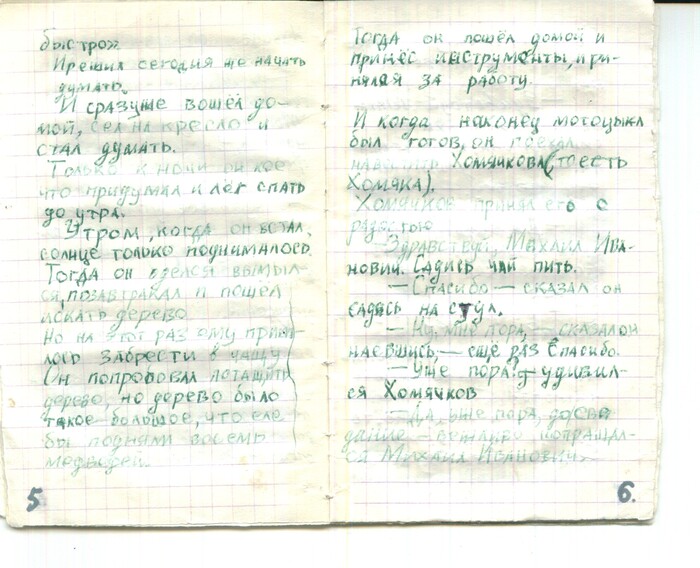 быстро».
И решил сегодня же начать
думать.
И сразуже вошёл до-
мой, сел на кресло и
стал думать.
Только к ночи он кое
что придумал и лёг спать
до утра.
Утром, когда он встал,
солнце только поднималось.
Тогда он оделся вымыл-
ся, позавтракал и пошёл
искать дерево
Но на этот раз ему приш-
лось забрести в чащу
Он попробовал потащить
дерево, но дерево было
такое большое, что еле
бы подняли восемь
медведей.
5
Тогда он пошёл домой и
принёс инструменты, при-
нялся за работу.
И когда наконец мотоцыкл
был готов, он поехал
навестить Хомячкова (тоесть
Хомяка).
Хомячков принял его с
радостью
— Здравствуй, Михаил Ива-
нович. Садись чай пить.
— Спасибо — сказал он
садясь на стул.
— Ну, мне пора, — сказал он
наевшись, — ещё раз спасибо.
— Уже пора? — удивил-
ся Хомячков
— Да, уже пора, досви
дание — попрощал-
ся Михаил Иванович.
6.